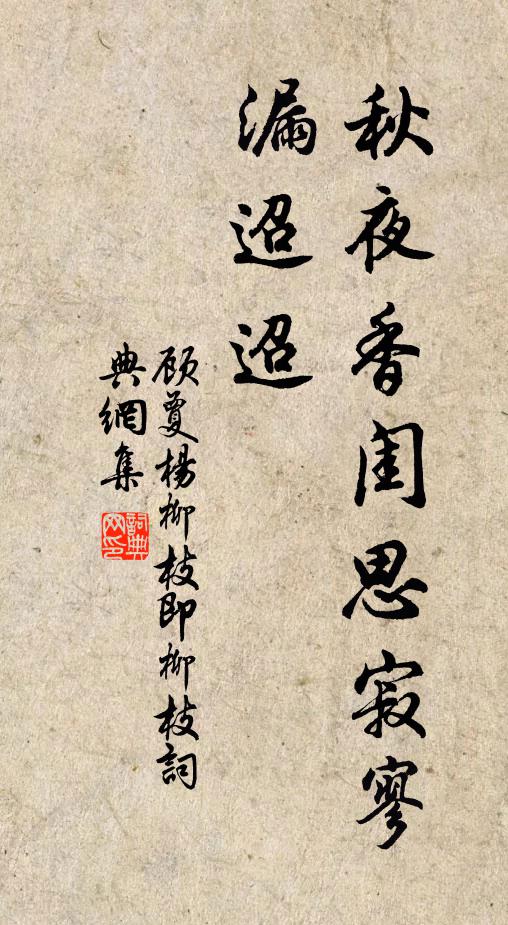 秋夜香闺思寂寥
漏迢迢
顾敻杨柳枝即柳枝詞
典網集
詞典網印